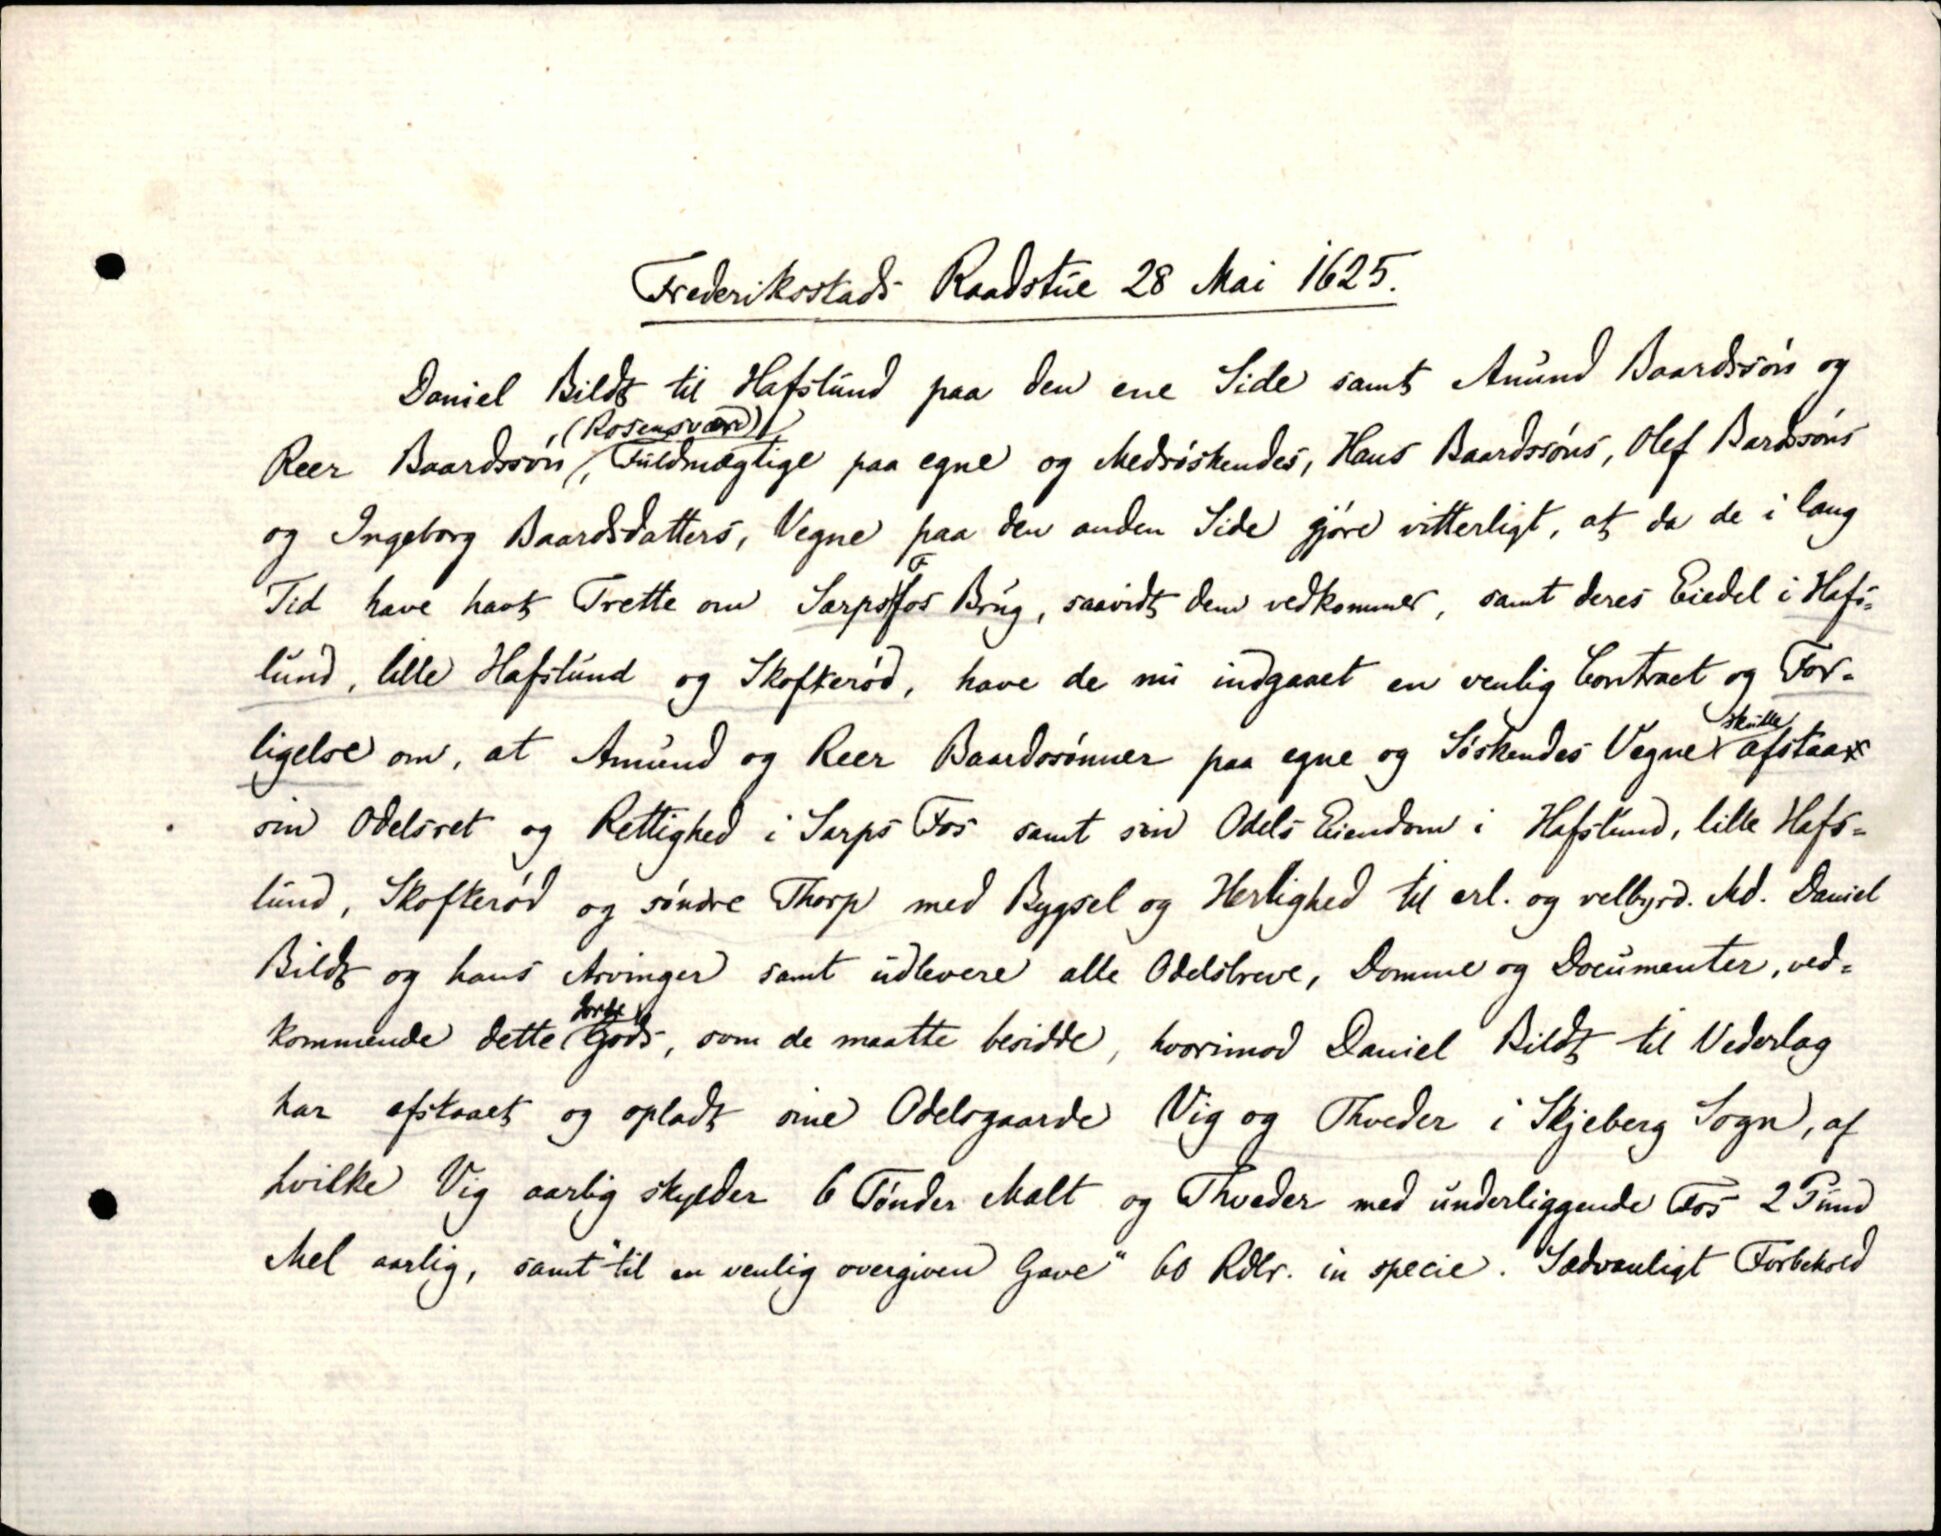 Frederiksstads Raadstue 28 Mai 1625.
Daniel Bildt til Hafslund paa den ene Side samt Amund Baardssøn og
(Rosensværd)
Reer Baardssøn, Fuldmægtige paa egne og Medsøskendes, Hans Baardssøns, Olef Bardssøns
og Ingeborg Baardsdatters, Vegne paa den anden Side gjøre vitterligt, at da de i lang
Tid have havt Trette om Sarps Fos Brug, saavidt dem vedkommer, samt deres Eiedel i Hafs=
lund, lille Hafslund og Skofterød, have de nu indgaaet en venlig Contract og For=
ligelse om, at Amund og Reer Baardssønner paa egne og Søskendes Vegne skulle afstaa
sin Odelsret og Rettighed i Sarps Fos samt sin Odels Eiendom i Hafslund, lille Hafs=
lund, Skofterød og søndre Thorp med Bygsel og Herlighed til erl. og velbyrd. Md. Daniel
Bildt og hans Arvinger samt udlevere alle Odelsbreve, Domme og Documenter, ved=
kommende dette Gods, som de maatte besidde, hvorimod Daniel Bildt til Vederlag
har afstaaet og opladt sine Odelsgaarde Vig og Thveder i Skjeberg Sogn, af
hvilke Vig aarlig skylder 6 Tønder Malt og Thveder med underliggende Fos 2 Pund
Mel aarlig, samt "til en venlig overgiven Gave" 60 Rdlr. in specie. Sædvanligt Forbehold